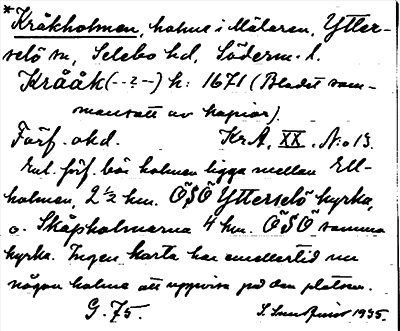 *Kråkholmen, holme i Mälaren, Ytter-
selö sn, Selebo hd, Söderm. l.
Krååk(--?-) h: 1671 (Bladet sam-
mansatt av kopior).
Förf. okd. Kr.A. XX. No 13.
Enl. förf. bör holmen ligga mellan Ell-
holmen, 2 ½ km. ÖSÖ Ytterselö kyrka,
o. Skåpholmarna 4 km. ÖSÖ samma
kyrka. Ingen karta har emellertid nu
någon holme att uppvisa på den platsen.
G. 75. 1935.